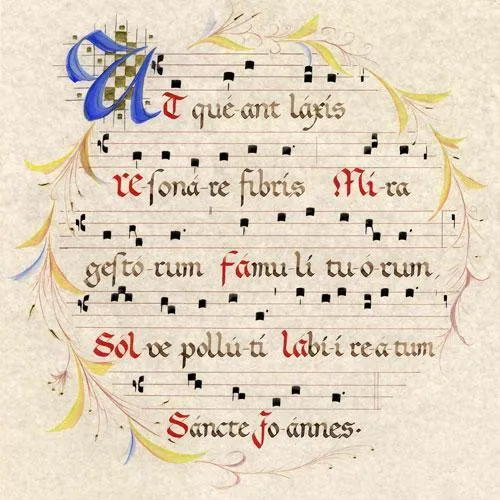 UT qué-ant láxis
re soná-re fibris Mi-ra
gestó-rum Fámu-li tu-ó-rum,
Sol-ve pollú-ti lábi-i re-a-tum
Sáncte Jo-ánnes.